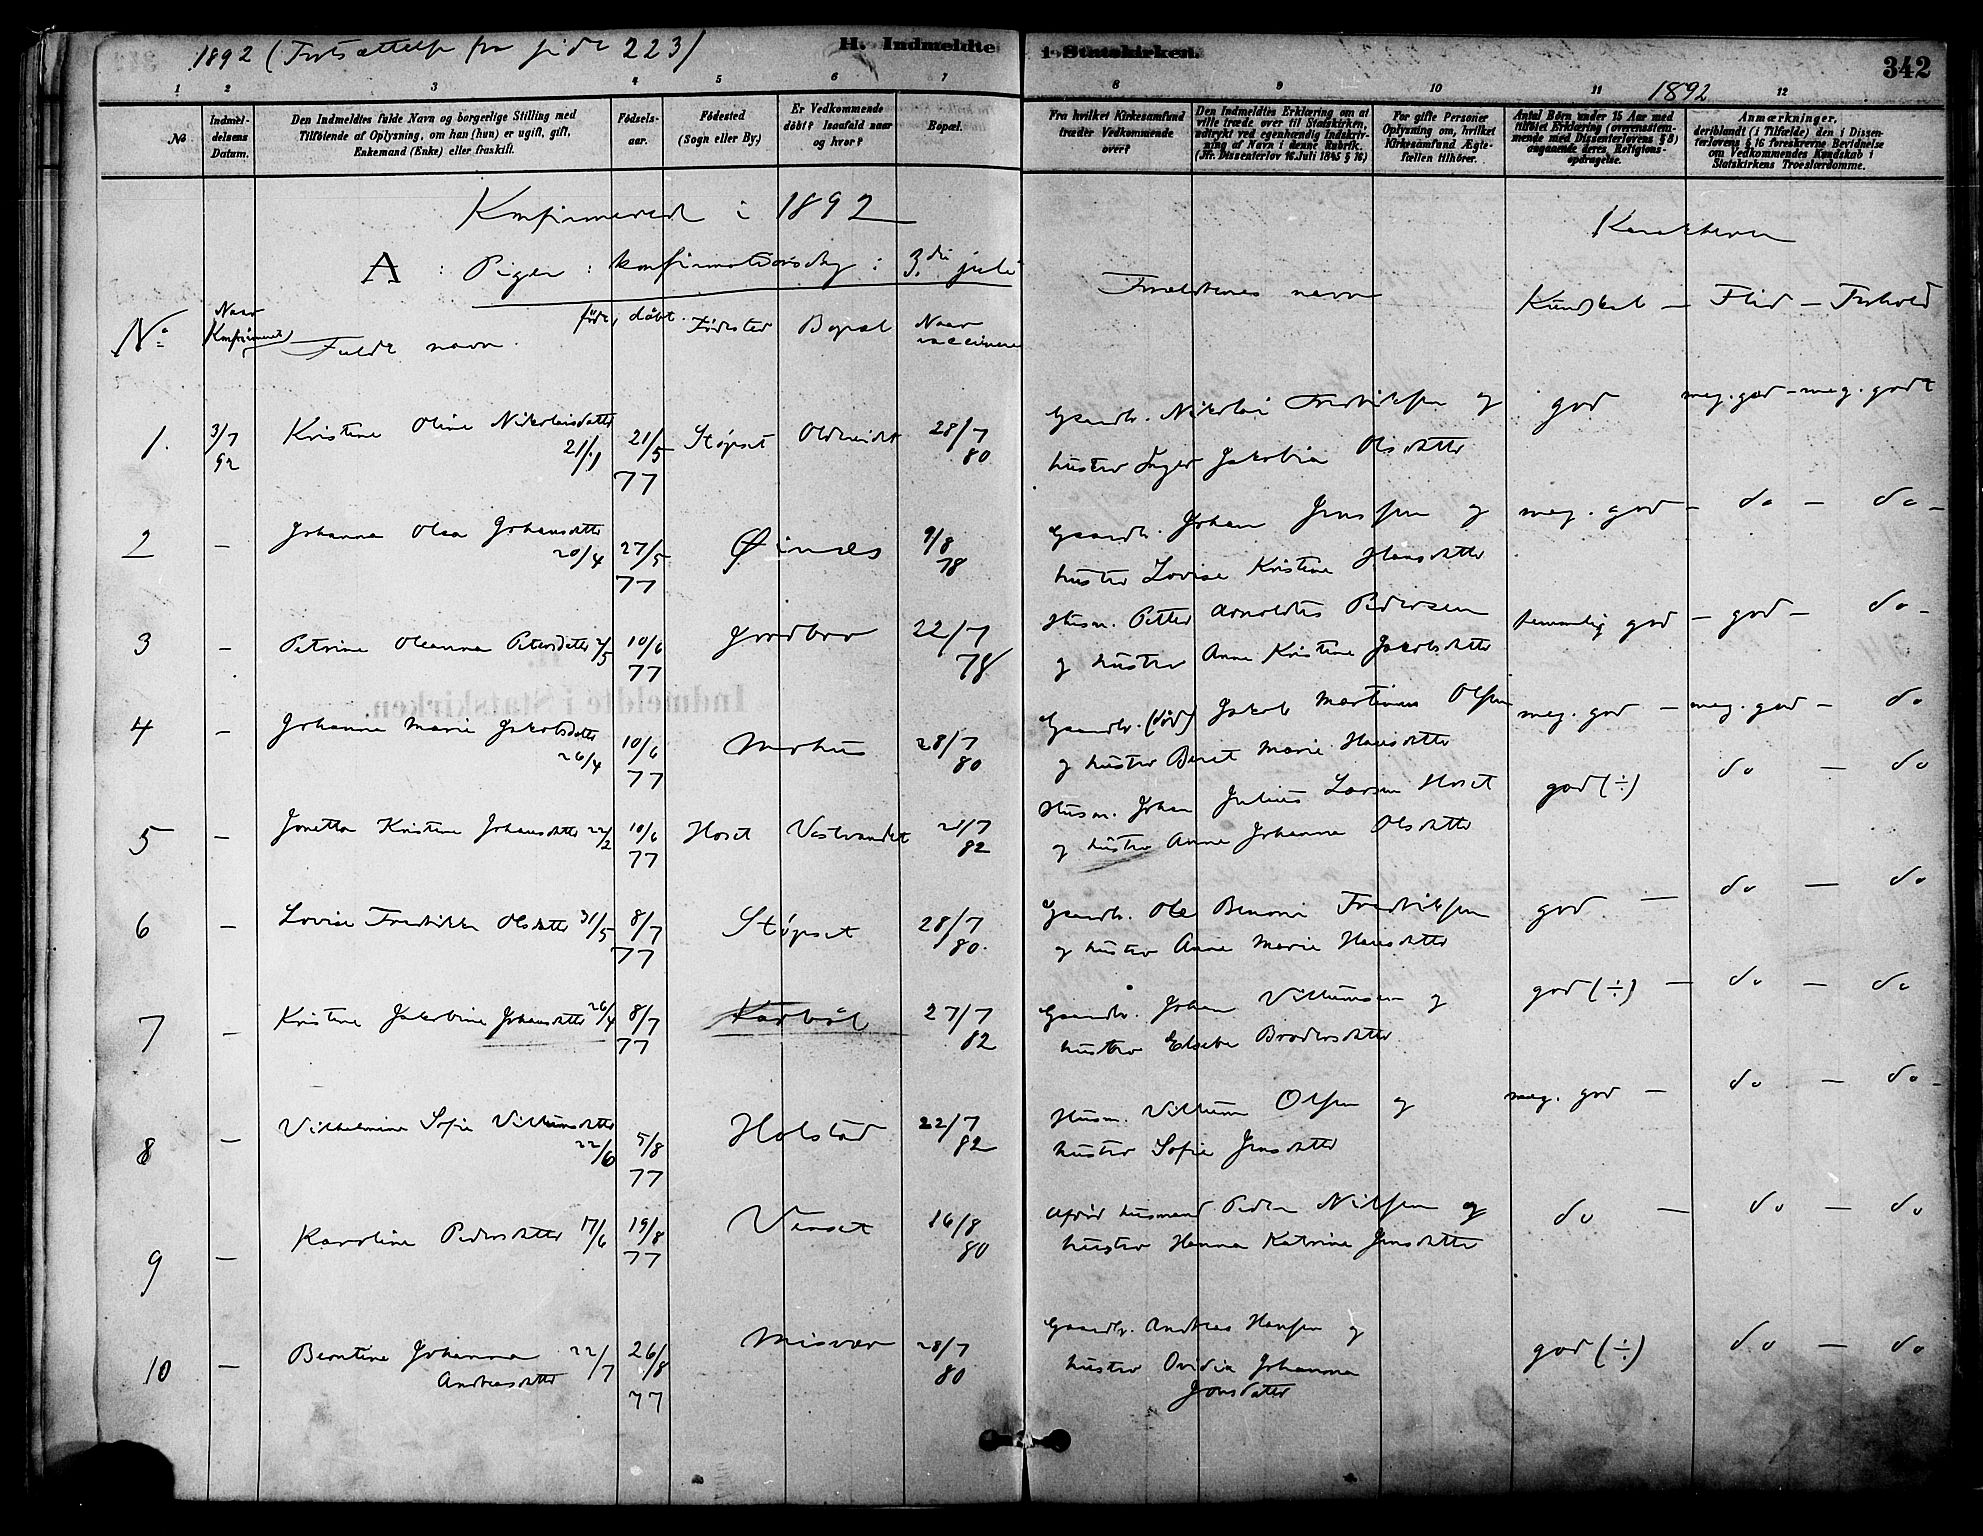 1892 (Fortsættelse fra side 223)
H. Indmeldte i Statskirken.
342
1892
1 2 3 4 5 6 7 8 9 10 11 12
№
Indmel-
delsens
Datum.
Den Indmeldtes fulde Navn og borgerlige Stilling med
Tilföiende af Oplysning, om han (hun) er ugift, gift,
Enkemand (Enke) eller fraskilt.
Födsels-
aar.
Födested
(Sogn eller By.)
Er Vedkommende
döbt? Isaafald naar
og hvor?
Bopæl.
Fra hvilket Kirkesamfund
træder Vedkommende
over?
Den Indmeldtes Erklæring om at
ville træde over til Statskirken,
udtrykt ved egenhændig Indskriv-
ning af Navn i denne Rubrik.
(Jfr. Dissenterlov 16 Juli 1845 § 16)
For gifte Personer
Oplysning om, hvilket
Kirkesamfund Ægte-
fællen tilhörer.
Antal Börn under 15 Aar med
tilföiet Erklæring (overensstem-
mende med Dissenterlovens § 8)
angaaende deres Religions-
opdragelse.
Anmærkninger,
deriblandt (i Tilfælde) den i Dissen-
terlovens § 16 foreskrevne Bevidnelse
om Vedkommendes Kundskab i
Statskirkens Troeslærdomme.
Konfirmerede i 1892
A : Piger : konfirmationsdag : 3die juli
Karakterer
No Naar Konfirmeret Fulde navn. født, døbt. Fødested Bopæl Naar vaccineret
Forældrenes navn
Kundskab – Flid – Forhold
1. 3/7 92 Kristine Oline Nikolaisdatter 21/5 77 Støpset Oldereidet 28/7 80
Gaardbr. Nikolai Fredriksen og god meg. god – meg. godt
hustru Inger Jakobia Olsdatter
2 – Johanna Olea Johansdatter 20/4 27/5 77 Øines 9/8 78
Gaardbr. Johan Jensen og meg. god – do – do –
hustru Lovise Kristine Hansdatter
3 – Petrine Oleanna Petersdatter 2/5 10/6 77 22/7 78
Husm. Petter Arnoldus Pedersen temmelig god – god – do –
og hustru Anne Kristine Jakobsdatter
4 – Johanna Marie Jakobsdatter 26/4 10/6 77 28/7 80
Gaardbr. (død) Jakob Martinus Olsen meg. god – meg. god – do
og hustru Beret Marie Hansdatter
5 – Jonetta Kristine Johansdatter 22/2 10/6 77 Hoset Vestvandet 21/7 82
Husm. Johan Julius Larsen Hoset god (÷) do – do
og hustru Anne Johanna Olsdatter
6 – Lovise Fredrikke Olsdatter 31/5 8/7 77 Støpset 28/7 80.
Gaardbr. Ole Benoni Fredriksen god – do – do
og hustru Anne Marie Hansdatter
7 – Kristine Jakobine Johansdatter 26/4 8/7 77 Karbøl 27/7 82
Gaardbr. Johan Villumsen og god (÷) – do – do
hustru Elsebe Brodersdatter
8 – Vilhelmine Sofie Villumsdatter 22/6 5/8 77 Holstad 22/7 82
Husm. Villum Olsen og meg. god – do – do –
hustru Sofie Jensdatter
9 – Karoline Pedersdatter 17/6 19/8 77 16/8 80
Afdød husmand Peder Nilsen og do – do – do
hustru Hanna Katrine Jensdatter
10 – Berntine Johanna 22/7 26/8 77 Misvær 28/7 80
Andreasdatter
Gaardbr. Andreas Hansen og god (÷) do – do
hustru Ovidia Johanna
Jonsdatter
Indmeldte i Statskirken.